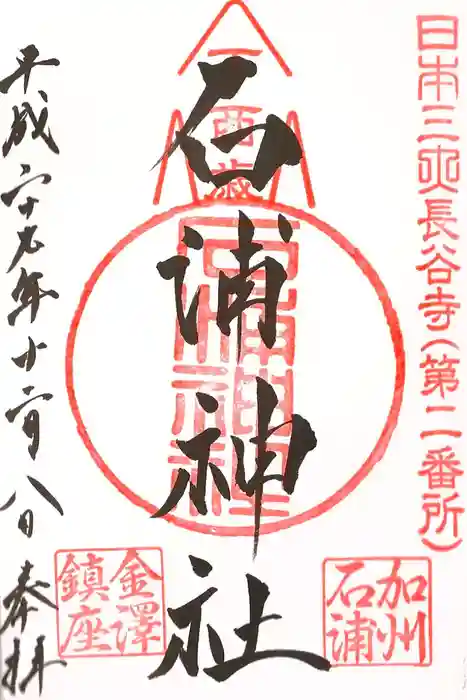 日本三大長谷寺(第二番所)
二千
百歳
石浦神社
石浦神社
加州
石浦
金澤
鎮座
平成二十九年十二月八日奉拝